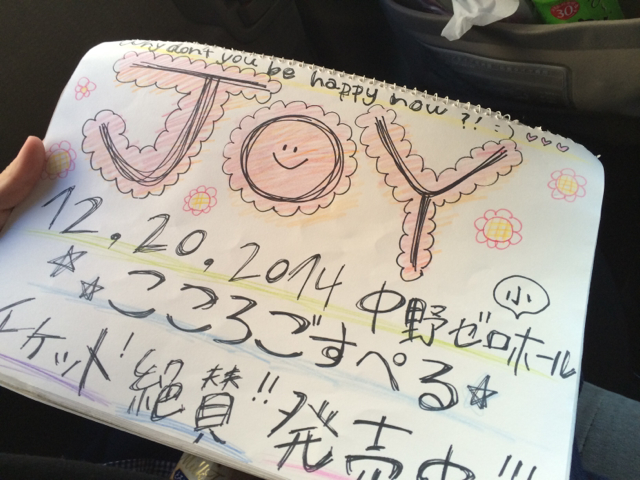 Why don't you be happy now?! :) ♡♡♡
JOY
12.20.2014 中野ゼロ小ホール
☆☆こころごすぺる☆
チケット! 絶賛!! 発売中!!!